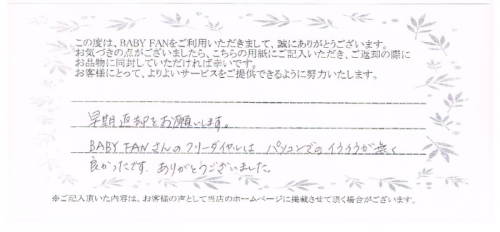 この度は、BABY FANをご利用いただきまして、誠にありがとうございます。
お気づきの点がございましたら、こちらの用紙にご記入いただき、ご返却の際に
お品物に同封していただければ幸いです。
お客様にとって、よりよいサービスをご提供できるように努力いたします。
早期返却をお願いします。
BABY FANさんのフリーダイヤルは パソコンでのイライラが無く
良かったです。ありがとうございました。
※ご記入頂いた内容は、お客様の声として当店のホームページに掲載させて頂く場合がございます。